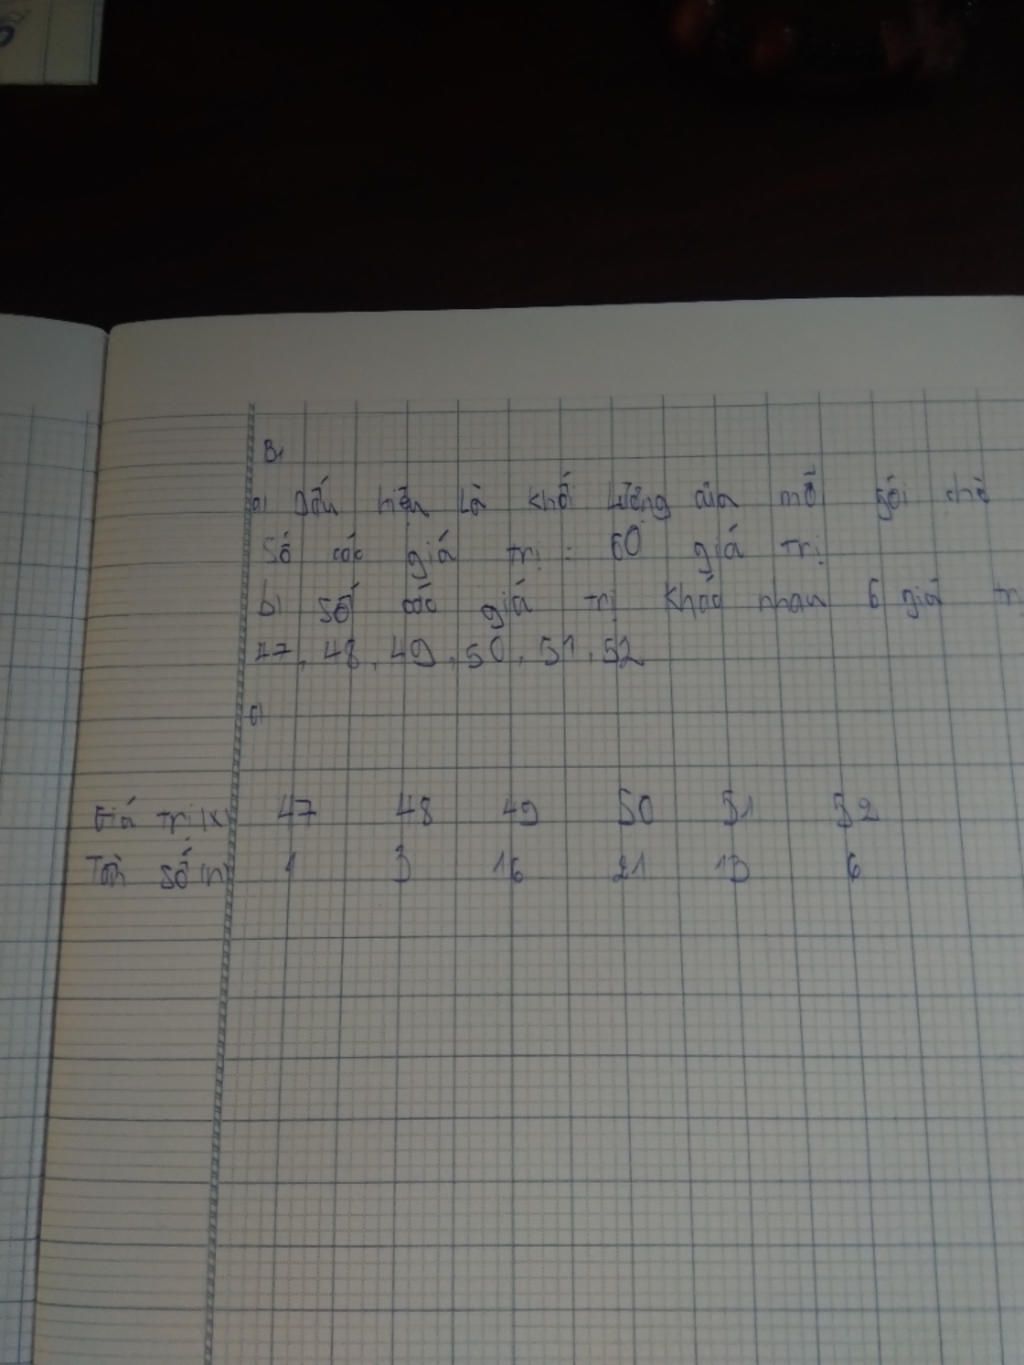 B1
a) Dấu hiệu là khối lượng của mỗ gói chè
Số các giá trị : 60 giá trị
b) số các giá trị khác nhau 6 giá tr
47, 48, 49, 50, 51, 52
c)
Giá trị (x) 47 48 49 50 51 52
Tần số (n) 1 3 16 21 13 6